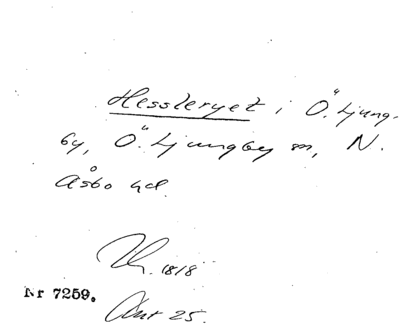 Hessleryet i Ö. Ljung-
by, Ö. Ljungby sn, N.
Åsbo hd.
1818
Nr 7259.
25.